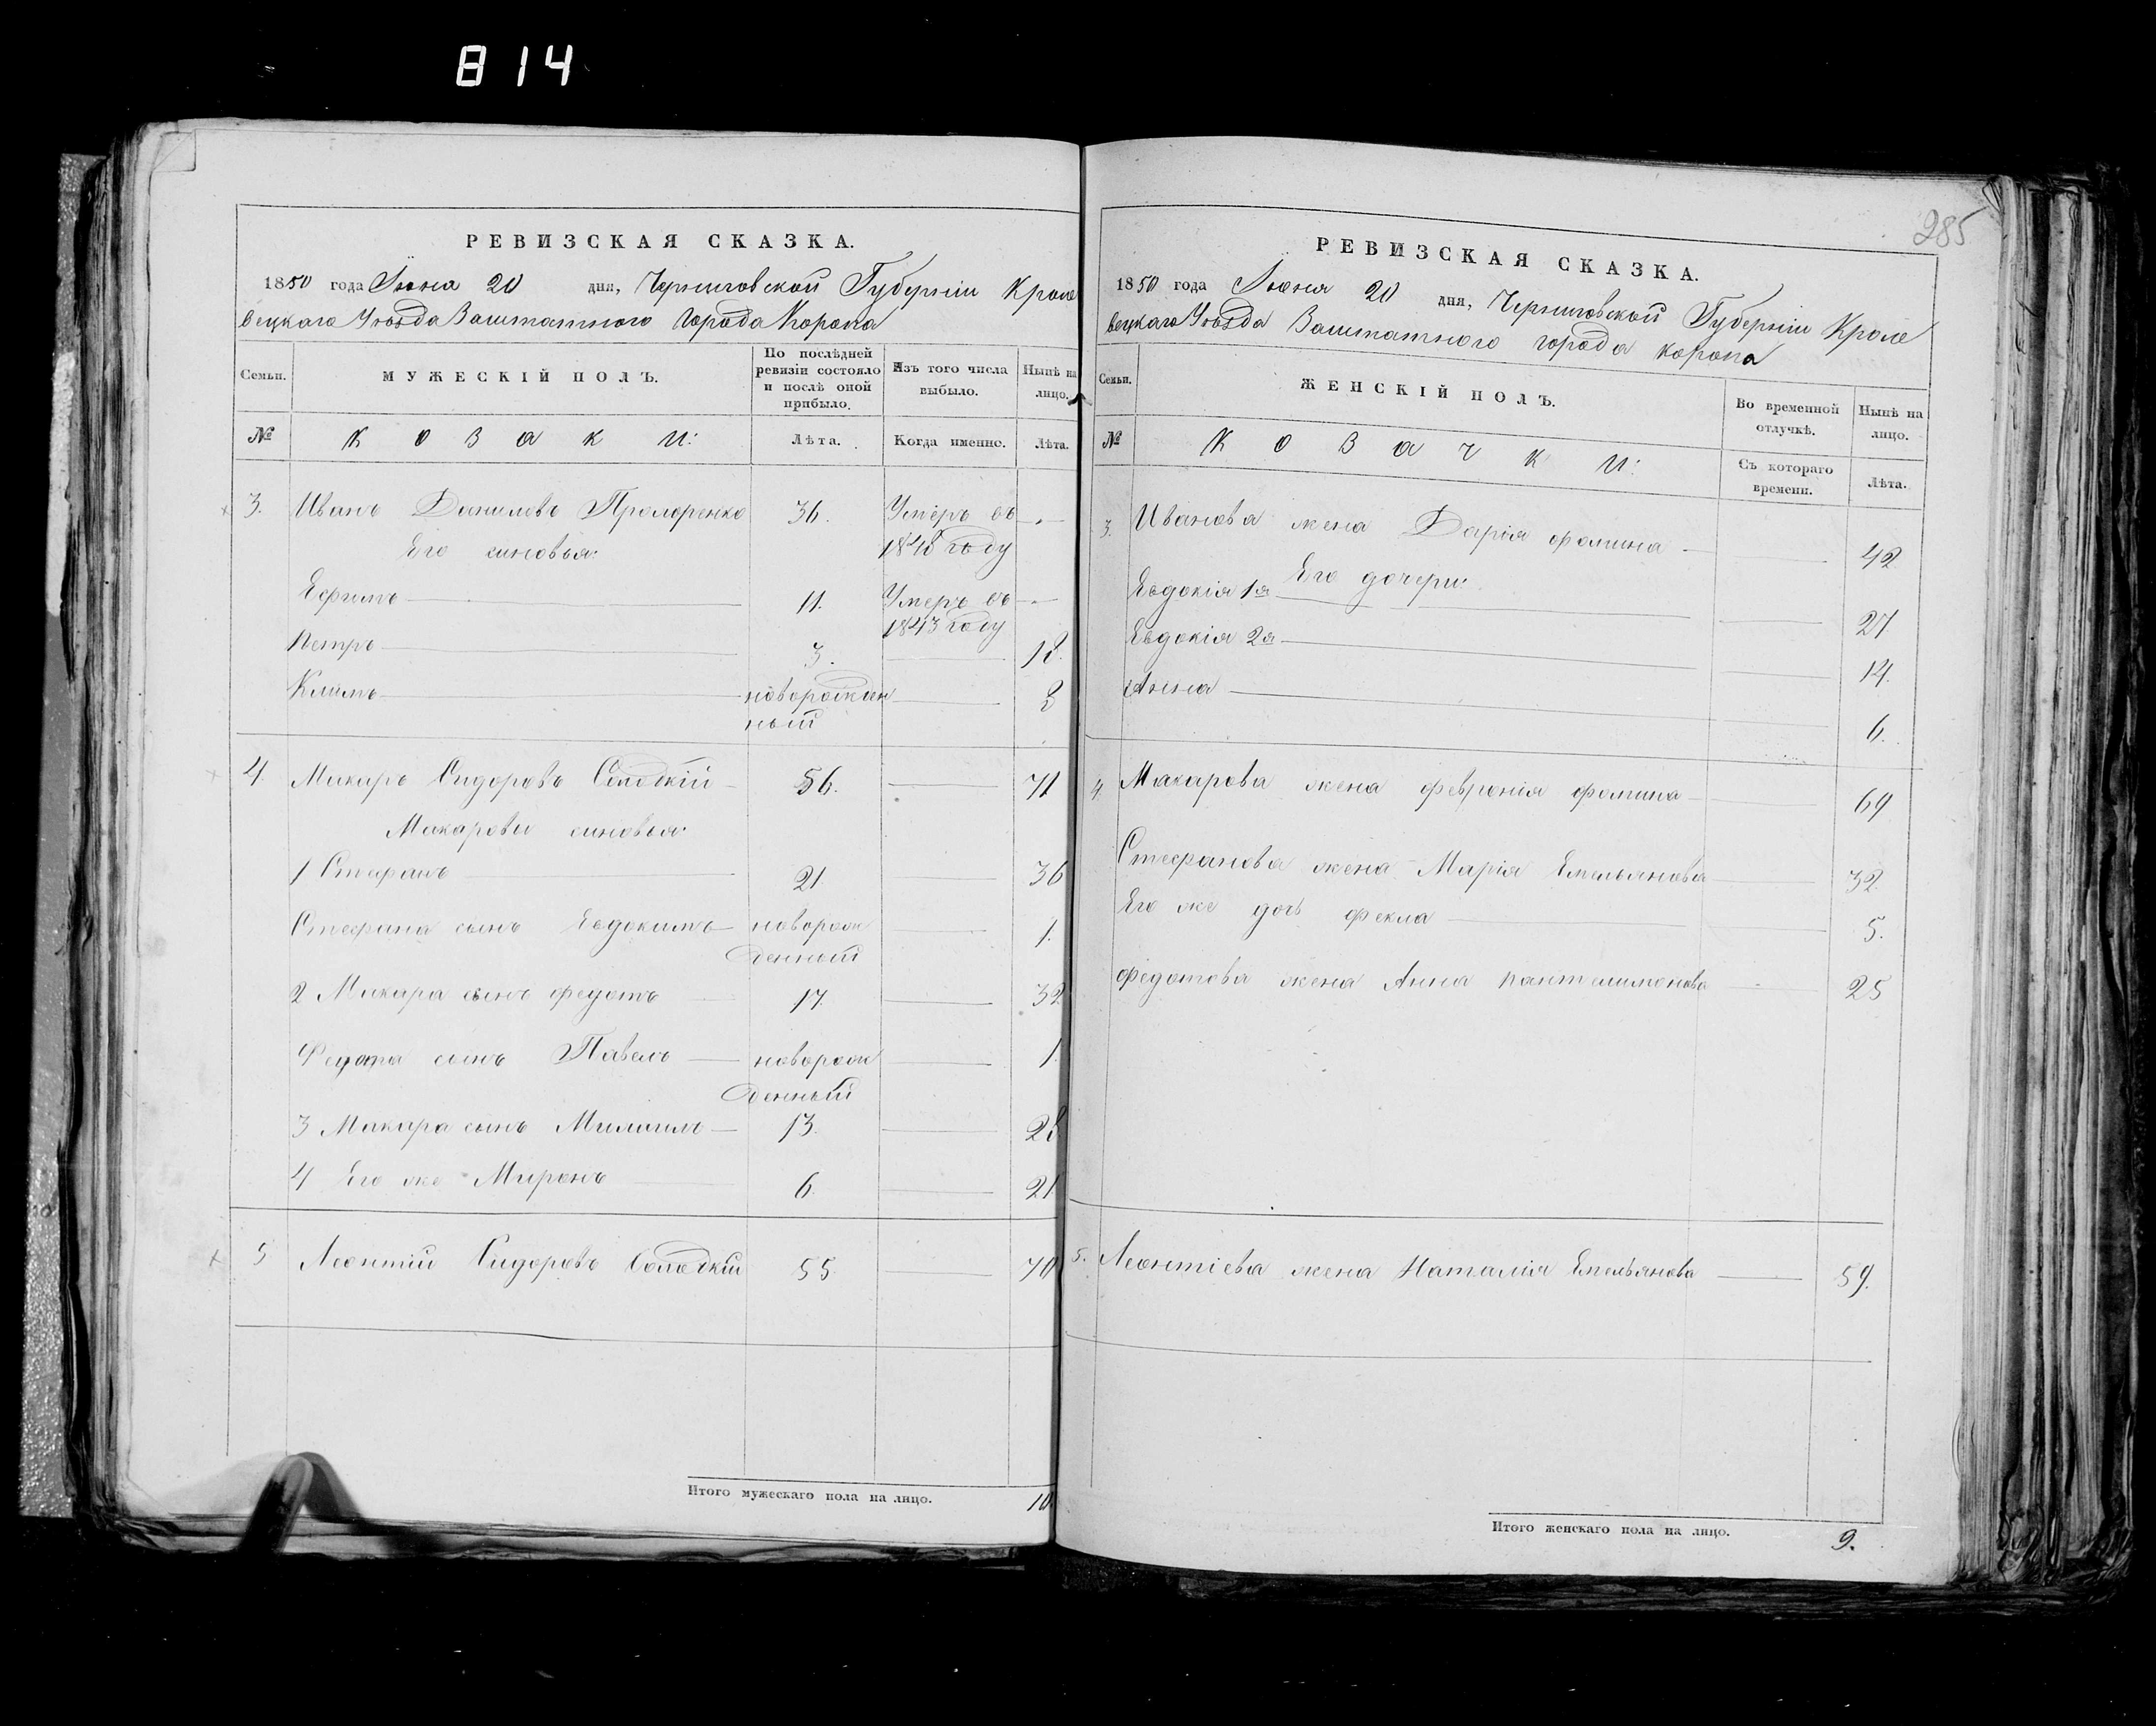 814
285
РЕВИЗСКАЯ СКАЗКА.
1850 года Июня 20 дня, Черниговской Губерніи Кроле
вецкаго Уѣзда Заштатного города Коропа
Семьи.
МУЖЕСКІЙ ПОЛЪ.
По послѣдней ревизіи состояло и послѣ оной прибыло.
Изъ того числа выбыло.
Нынѣ на лицо.
№
Козаки:
Лѣта.
Когда именно.
Лѣта.
3. Иванъ Даниловъ 36. Умеръ въ
Его синовья: году
Ефимъ 11. Умеръ въ
1843 году
Петръ 3. 18.
Климъ новорожден 8
ный
4. Макаръ Сидоровъ Солодкій 56. 71
Макаровы синовья:
1 Стефанъ 21 36
Стефана сынъ Евдокимъ новорож 1.
денный
2 Макара сынъ Федотъ 17. 32
Федота сынъ Павелъ новорож 1.
денный
3 Макара сынъ 13. 28.
4 Его же Миронъ 6. 21.
5 Леонтий Сидоровъ Солодкій 55. 70
Итого мужескаго пола на лицо. 10.
РЕВИЗСКАЯ СКАЗКА.
1850 года Июня 20 дня, Черниговской Губерніи Кроле
вецкаго Уѣзда Заштатного города Коропа
Семьи.
ЖЕНСКІЙ ПОЛЪ.
Во временной отлучкѣ.
Нынѣ на лицо.
№
Козачки:
Съ котораго времени.
Лѣта.
3. Иванова жена Дарія Фомина 42
Его дочери:
Евдокія 1я 27
Евдокія 2я 14.
Анна 6.
4. Макарова жена Февронія Фомина 69
Стефанова жена Марія Емельянова 32.
Его же дочь Фекла 5.
Федотова жена Анна Пантелимонова 25
5. Леонтіева жена Наталія Емельянова 59.
Итого женскаго пола на лицо. 9.